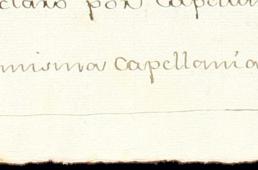 por Capellan
misma capellania